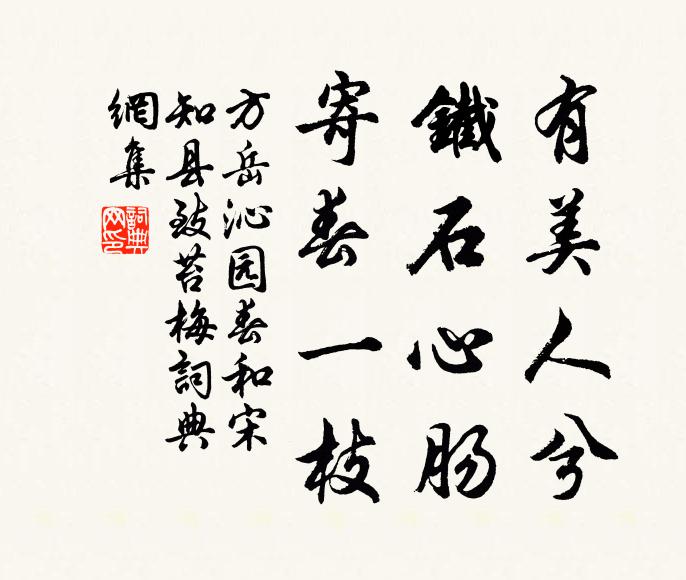 有美人兮
鐵石心肠
寄春一枝
方岳沁园春和宋
知县致苔梅詞典
網集
詞典
网印